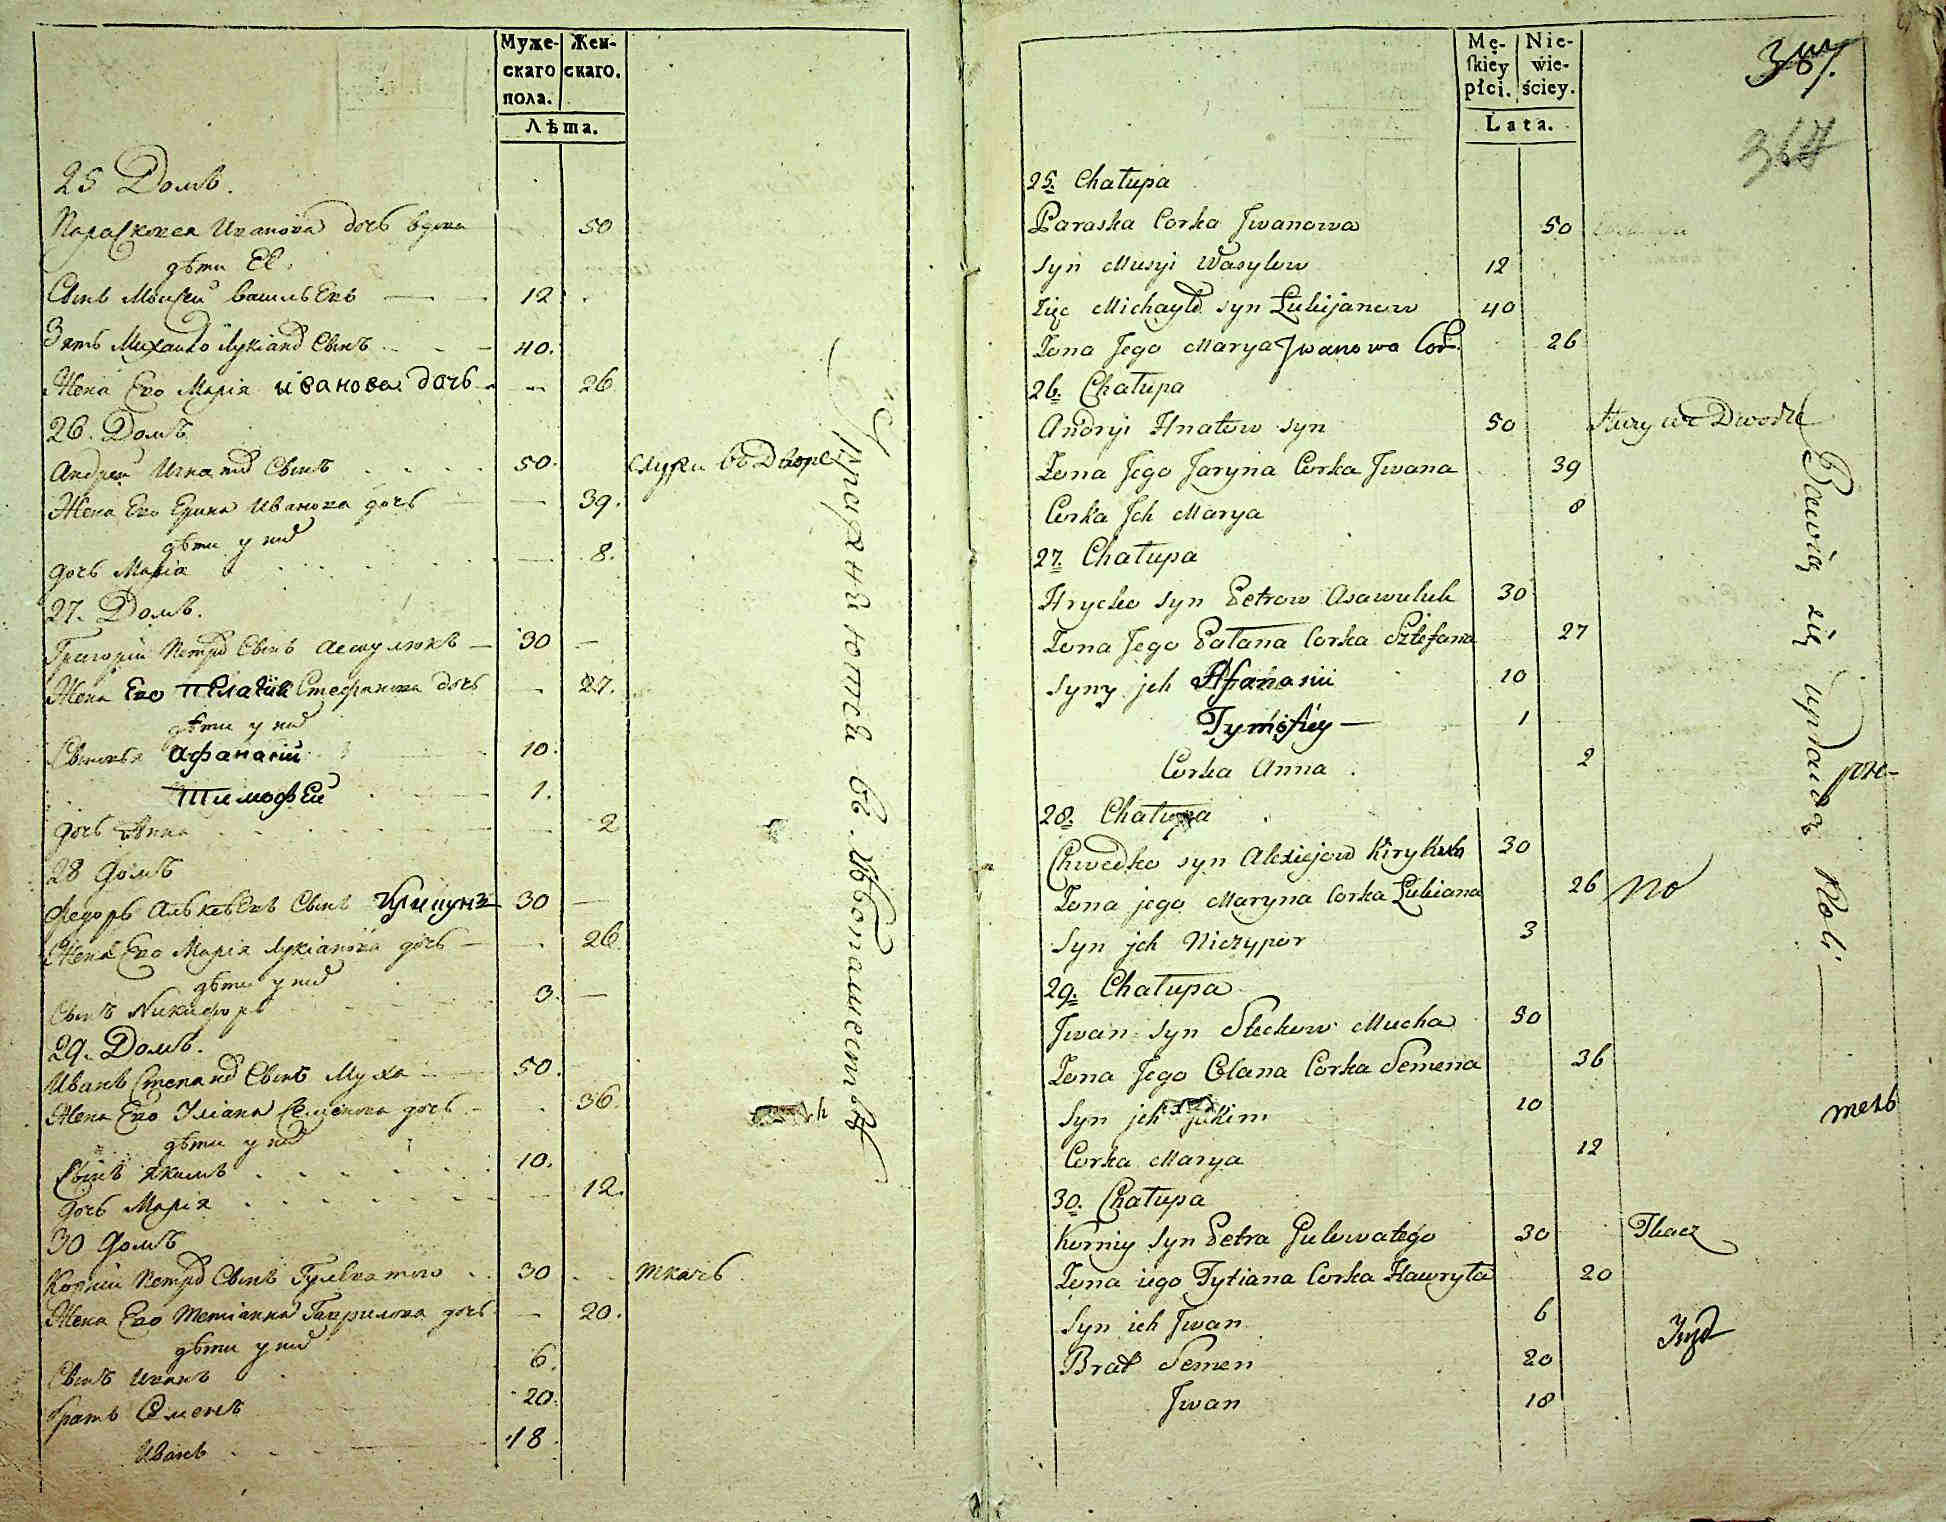 Муже-
скаго
пола.
Жен-
скаго.
Лѣта.
25 Домъ.
Параскевея Иванова дочь вдова 50
дѣти Ее.
Сынъ Моисей васильевъ 12
Зять Михаило Лукіановъ Сынъ 40.
Жена Его Марія иванова дочь 26
26. Домъ
Андрей Игнатов Сынъ 50. служи въ Дворе
Жена Его Ерина Иванова дочь 39.
дѣти у них
дочь Маріа 8.
27. Домъ.
Григорій Петров Сынъ 30
Жена Его Пелагія Стефанова дочь 27.
дѣти у них
Сыновья Афанасій 10.
Тимофей 1.
дочь Анна 2
28 домъ
Федоръ Сынъ 30
Жена Его Марія Лукіанова дочь 26
дѣти у них
Сынъ Никифоръ 3.
29. Домъ.
Иванъ Степанов Сынъ Муха 50.
Жена Его Уліана Семенова дочь 36.
дѣти у них
Сынъ Якимъ 10.
дочь Марія 12.
30 домъ
Корній Петров Сынъ Гулеватого 30 ткачь
Жена Его Тетіанна Гаврилова дочь 20.
дѣти у них
Сынъ Иванъ 6.
братъ Семенъ 20.
Иванъ 18
Упражняются въ хлѣбопашествѣ
Mę-
skiey
płci.
Nie-
wie-
ściey.
Lata.
367
25. Chałupa
Paraska Corka Jwanowa 50
Syn Musyi Wasylow 12
Zięc Michayło syn Lukijanow 40
Zona Jego Marya Jwanowa Cor. 26
26. Chałupa
Andryi Hnatow syn 50 słuzy we Dworze
Zona Jego Jaryna Corka Jwana 39
Corka Jch Marya 8
27. Chałupa
Hrycko syn Petrow Asawuluk 30
Zona Jego Pałana Corka Sztefana 27
Syny jch Afanasiii 10
Tymofiey 1
Corka Anna 2
28. Chałupa
Chwedko syn Alexiejow 30
Zona jego Maryna Corka Lukiana 26
Syn jch Niczypor 3
29. Chałupa
Jwan syn Mucha 50
Zona Jego Olana Corka Semena 36
Syn jch Jakim 10
Corka Marya 12
30. Chałupa
Korniy Syn Petra Gulowatego 30 Tkacz
Zona iego Tytiana Corka Hawryła 20
Syn ich Jwan 6
Brat Semen 20
Jwan 18
Bawią się uprawą Roli